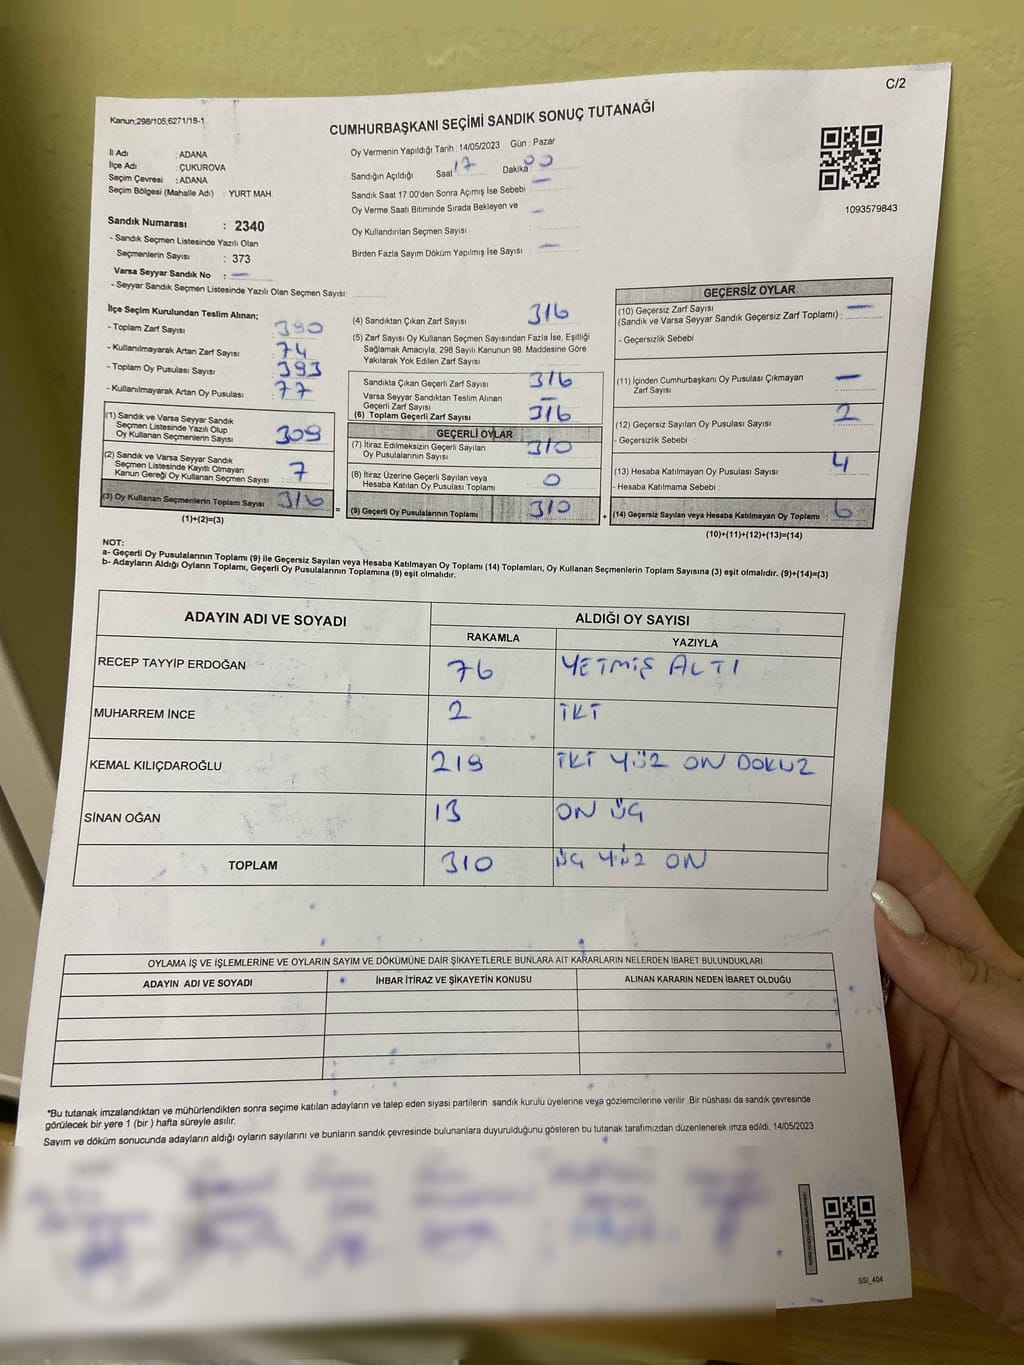 C/2
Kanun:298/105,6271/18-1
CUMHURBAŞKANI SEÇİMİ SANDIK SONUÇ TUTANAĞI
İl Adı : ADANA
İlçe Adı : ÇUKUROVA
Seçim Çevresi : ADANA
Seçim Bölgesi (Mahalle Adı) : YURT MAH.
Sandık Numarası : 2340
- Sandık Seçmen Listesinde Yazılı Olan
Seçmenlerin Sayısı : 373
Varsa Seyyar Sandık No : —
- Seyyar Sandık Seçmen Listesinde Yazılı Olan Seçmen Sayısı:
Oy Vermenin Yapıldığı Tarih : 14/05/2023 Gün : Pazar
Sandığın Açıldığı Saat 17 Dakika 00
Sandık Saat 17.00'den Sonra Açımış İse Sebebi : —
Oy Verme Saati Bitiminde Sırada Bekleyen ve —
Oy Kullandırılan Seçmen Sayısı :
Birden Fazla Sayım Döküm Yapılmış İse Sayısı : —
1093579843
İlçe Seçim Kurulundan Teslim Alınan;
- Toplam Zarf Sayısı : 390
- Kullanılmayarak Artan Zarf Sayısı : 74
- Toplam Oy Pusulası Sayısı : 393
- Kullanılmayarak Artan Oy Pusulası : 77
(1) Sandık ve Varsa Seyyar Sandık
Seçmen Listesinde Yazılı Olup
Oy Kullanan Seçmenlerin Sayısı : 309
(2) Sandık ve Varsa Seyyar Sandık
Seçmen Listesinde Kayıtlı Olmayan
Kanun Gereği Oy Kullanan Seçmen Sayısı : 7
(3) Oy Kullanan Seçmenlerin Toplam Sayısı 316
(1)+(2)=(3)
(4) Sandıktan Çıkan Zarf Sayısı : 316
(5) Zarf Sayısı Oy Kullanan Seçmen Sayısından Fazla İse, Eşitliği
Sağlamak Amacıyla, 298 Sayılı Kanunun 98. Maddesine Göre
Yakılarak Yok Edilen Zarf Sayısı :
Sandıkta Çıkan Geçerli Zarf Sayısı : 316
Varsa Seyyar Sandıktan Teslim Alınan
Geçerli Zarf Sayısı : —
(6) Toplam Geçerli Zarf Sayısı : 316
GEÇERLİ OYLAR
(7) İtiraz Edilmeksizin Geçerli Sayılan
Oy Pusulalarının Sayısı : 310
(8) İtiraz Üzerine Geçerli Sayılan veya
Hesaba Katılan Oy Pusulası Toplamı : 0
= (9) Geçerli Oy Pusulalarının Toplamı : 310
GEÇERSİZ OYLAR
(10) Geçersiz Zarf Sayısı —
(Sandık ve Varsa Seyyar Sandık Geçersiz Zarf Toplamı) :
- Geçersizlik Sebebi :
(11) İçinden Cumhurbaşkanı Oy Pusulası Çıkmayan —
Zarf Sayısı :
(12) Geçersiz Sayılan Oy Pusulası Sayısı : 2
- Geçersizlik Sebebi :
(13) Hesaba Katılmayan Oy Pusulası Sayısı : 4
- Hesaba Katılmama Sebebi :
+ (14) Geçersiz Sayılan veya Hesaba Katılmayan Oy Toplamı : 6
(10)+(11)+(12)+(13)=(14)
NOT:
a- Geçerli Oy Pusulalarının Toplamı (9) ile Geçersiz Sayılan veya Hesaba Katılmayan Oy Toplamı (14) Toplamları, Oy Kullanan Seçmenlerin Toplam Sayısına (3) eşit olmalıdır. (9)+(14)=(3)
b- Adayların Aldığı Oyların Toplamı, Geçerli Oy Pusulalarının Toplamına (9) eşit olmalıdır.
ADAYIN ADI VE SOYADI
ALDIĞI OY SAYISI
RAKAMLA YAZIYLA
RECEP TAYYİP ERDOĞAN 76 YETMİŞ ALTI
MUHARREM İNCE 2 İKİ
KEMAL KILIÇDAROĞLU 219 İKİ YÜZ ON DOKUZ
SİNAN OĞAN 13 ON ÜÇ
TOPLAM 310 ÜÇ YÜZ ON
OYLAMA İŞ VE İŞLEMLERİNE VE OYLARIN SAYIM VE DÖKÜMÜNE DAİR ŞİKAYETLERLE BUNLARA AİT KARARLARIN NELERDEN İBARET BULUNDUKLARI
ADAYIN ADI VE SOYADI İHBAR İTİRAZ VE ŞİKAYETİN KONUSU ALINAN KARARIN NEDEN İBARET OLDUĞU
*Bu tutanak imzalandıktan ve mühürlendikten sonra seçime katılan adayların ve talep eden siyasi partilerin sandık kurulu üyelerine veya gözlemcilerine verilir. Bir nüshası da sandık çevresinde
görülecek bir yere 1 (bir ) hafta süreyle asılır.
Sayım ve döküm sonucunda adayların aldığı oyların sayılarını ve bunların sandık çevresinde bulunanlara duyurulduğunu gösteren bu tutanak tarafımızdan düzenlenerek imza edildi. 14/05/2023
SSI_404